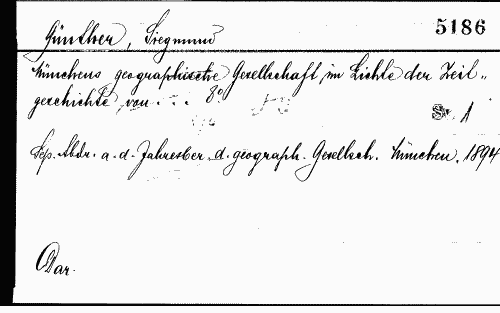 5186
Günther, Siegmund
Münchens geographische Gesellschaft im Lichte der Zeit-
geschichte von . . . 8°.
1
Sep. Abdr. a. d. Jahresber. d. geograph. Gesellsch. München. 1894
Dar.